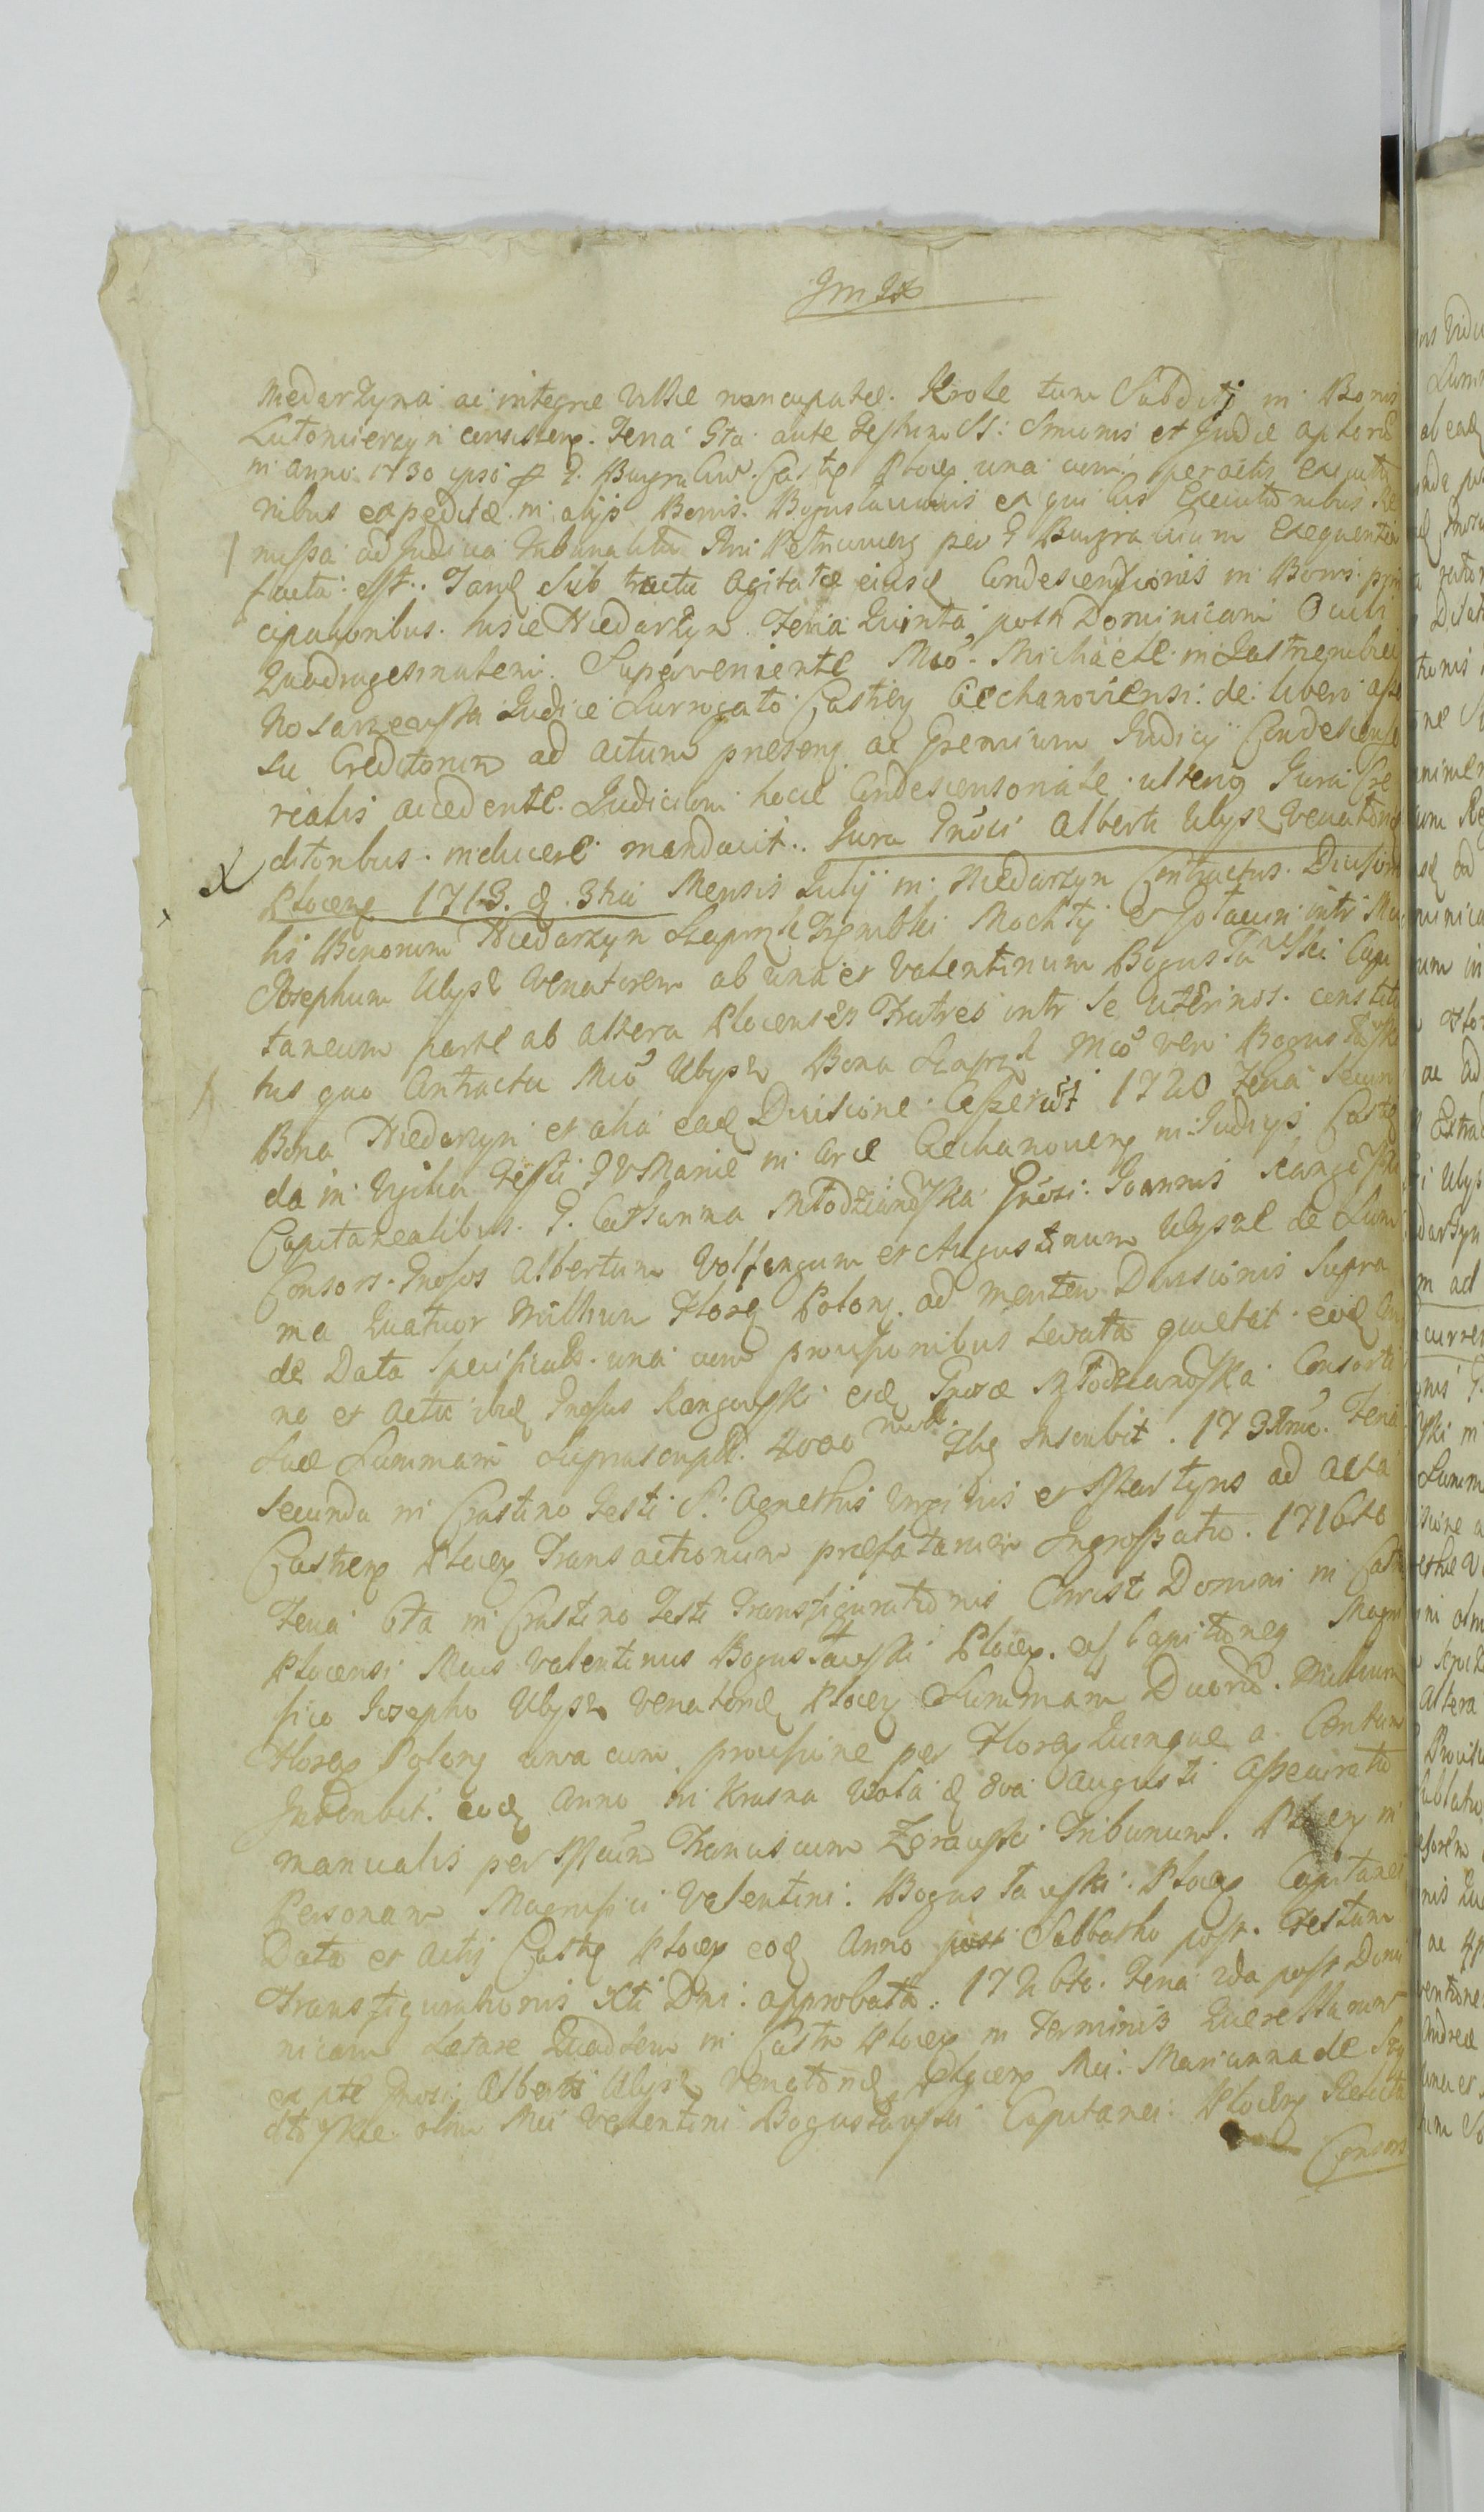 Niedarzyna ac integræ Villæ nuncupatæ Krole tum Subditj in Bonis
Lutomierzyn consisten. Feria 5ta ante Festum SS: Simonis et Judæ aptorũ
in anno 1730 ipso p G. Burgrabiũ Castrẽ Plocen una cum peractis Executio
nibus expeditæ in alijs Bonis Bogusławianis ex quibus Executionibus Re
missa ad Judicia Tribunalitia Rni Petricovien per G Burgrabium Exequentem
facta est. Tandẽ Sub tractu agitatæ eiusdẽ Condescensionis in Bonis prin
cipalioribus hisce Niedarzyn Feria Quinta post Dominicam Oculi
Quadragesimalem Superveniente Mco Michaele in Jastrzembiec
Nosarzewski Judice Surrogato Castren Ciechanoviensi de libero asses
su Creditorum ad actum præsen ac Gremium Judicij Condescenso
rialis accedente Judicium hocce Condescensoriale ulterio Jura Cre
ditoribus inducere mandavit. Jura Gnosi Alberti Ulysz Venatoris
Plocen 1713. d. 3tia Mensis Julij in Niedarzyn Contractus Divisiona
lis Bonorum Niedarzyn Mochty et intr Mcu
Josephum Ulysz Venatorem ab una et Valentinum Bogusławski Capi
taneum parte ab altera Plocenses Fratres intr se uterinos constitu
tus quo Contractu Mco Ulysz Bona Mco vero Bogusławski
Bona Niedarzyn et alia eadẽ Divisione Cesserũt 1720 Feria Secun
da in Vigilia Festi B V Mariæ in Arce Ciechanovien in Judicijs Castren
Capitanealibus G. Catharina Młodzianowska Gnosi Joannis Kangowski
Consors Gnosos Albertum Volfangum et Augustinum Ulysze de Sum
ma Quatuor Millium Floren Polon. ad mentem Divisionis Supra
de Data Specificatæ una cum provisionibus levata quietat eodẽ An
no et Actu ibidẽ Gnosus Kangowski eidẽ Gnosæ Młodzianowska Consorti
Suæ Summam Suprascriptã 4000 Inscribit. Feria
Secunda in Crastino Festi S. Agnethis Virginis et Martyris ad acta
Castren Plocen Transactionum præfatarum Ingrossatio. 1716to
Feria 6ta in Crastino Festi Transfigurationis Christi Domini in Castro
Plocensi Mcus Valentinus Bogusławski Plocen. Magni
fico Josepho Ulysz Venatori Plocen Summam Duorũ Millium
Floren Polon una cum provisione per Floren Quinque a Centum
Inscribit. eodẽ Anno in Krasna Wola d 8va Augusti Assecuratio
manualis per Mcum Franciscum Zerawski Tribunum Plocen in
Personam Magnifici Valentini Bogusławski Plocen Capitanei
Data et Actis Castren Plocen eodẽ Anno Sabbatho post Festum
Transfigurationis Xti Dni approbata. 1726to Feria 2da post Domi
nicam Lætare Quadlem in Castro Plocen in Terminis Querellarum
ex pte Gnosi Alberti Ulysz Venatoris Plocen Mci Marianna de
olim Mci Valentini Bogusławski Capitanei Plocen Relicta
Consors